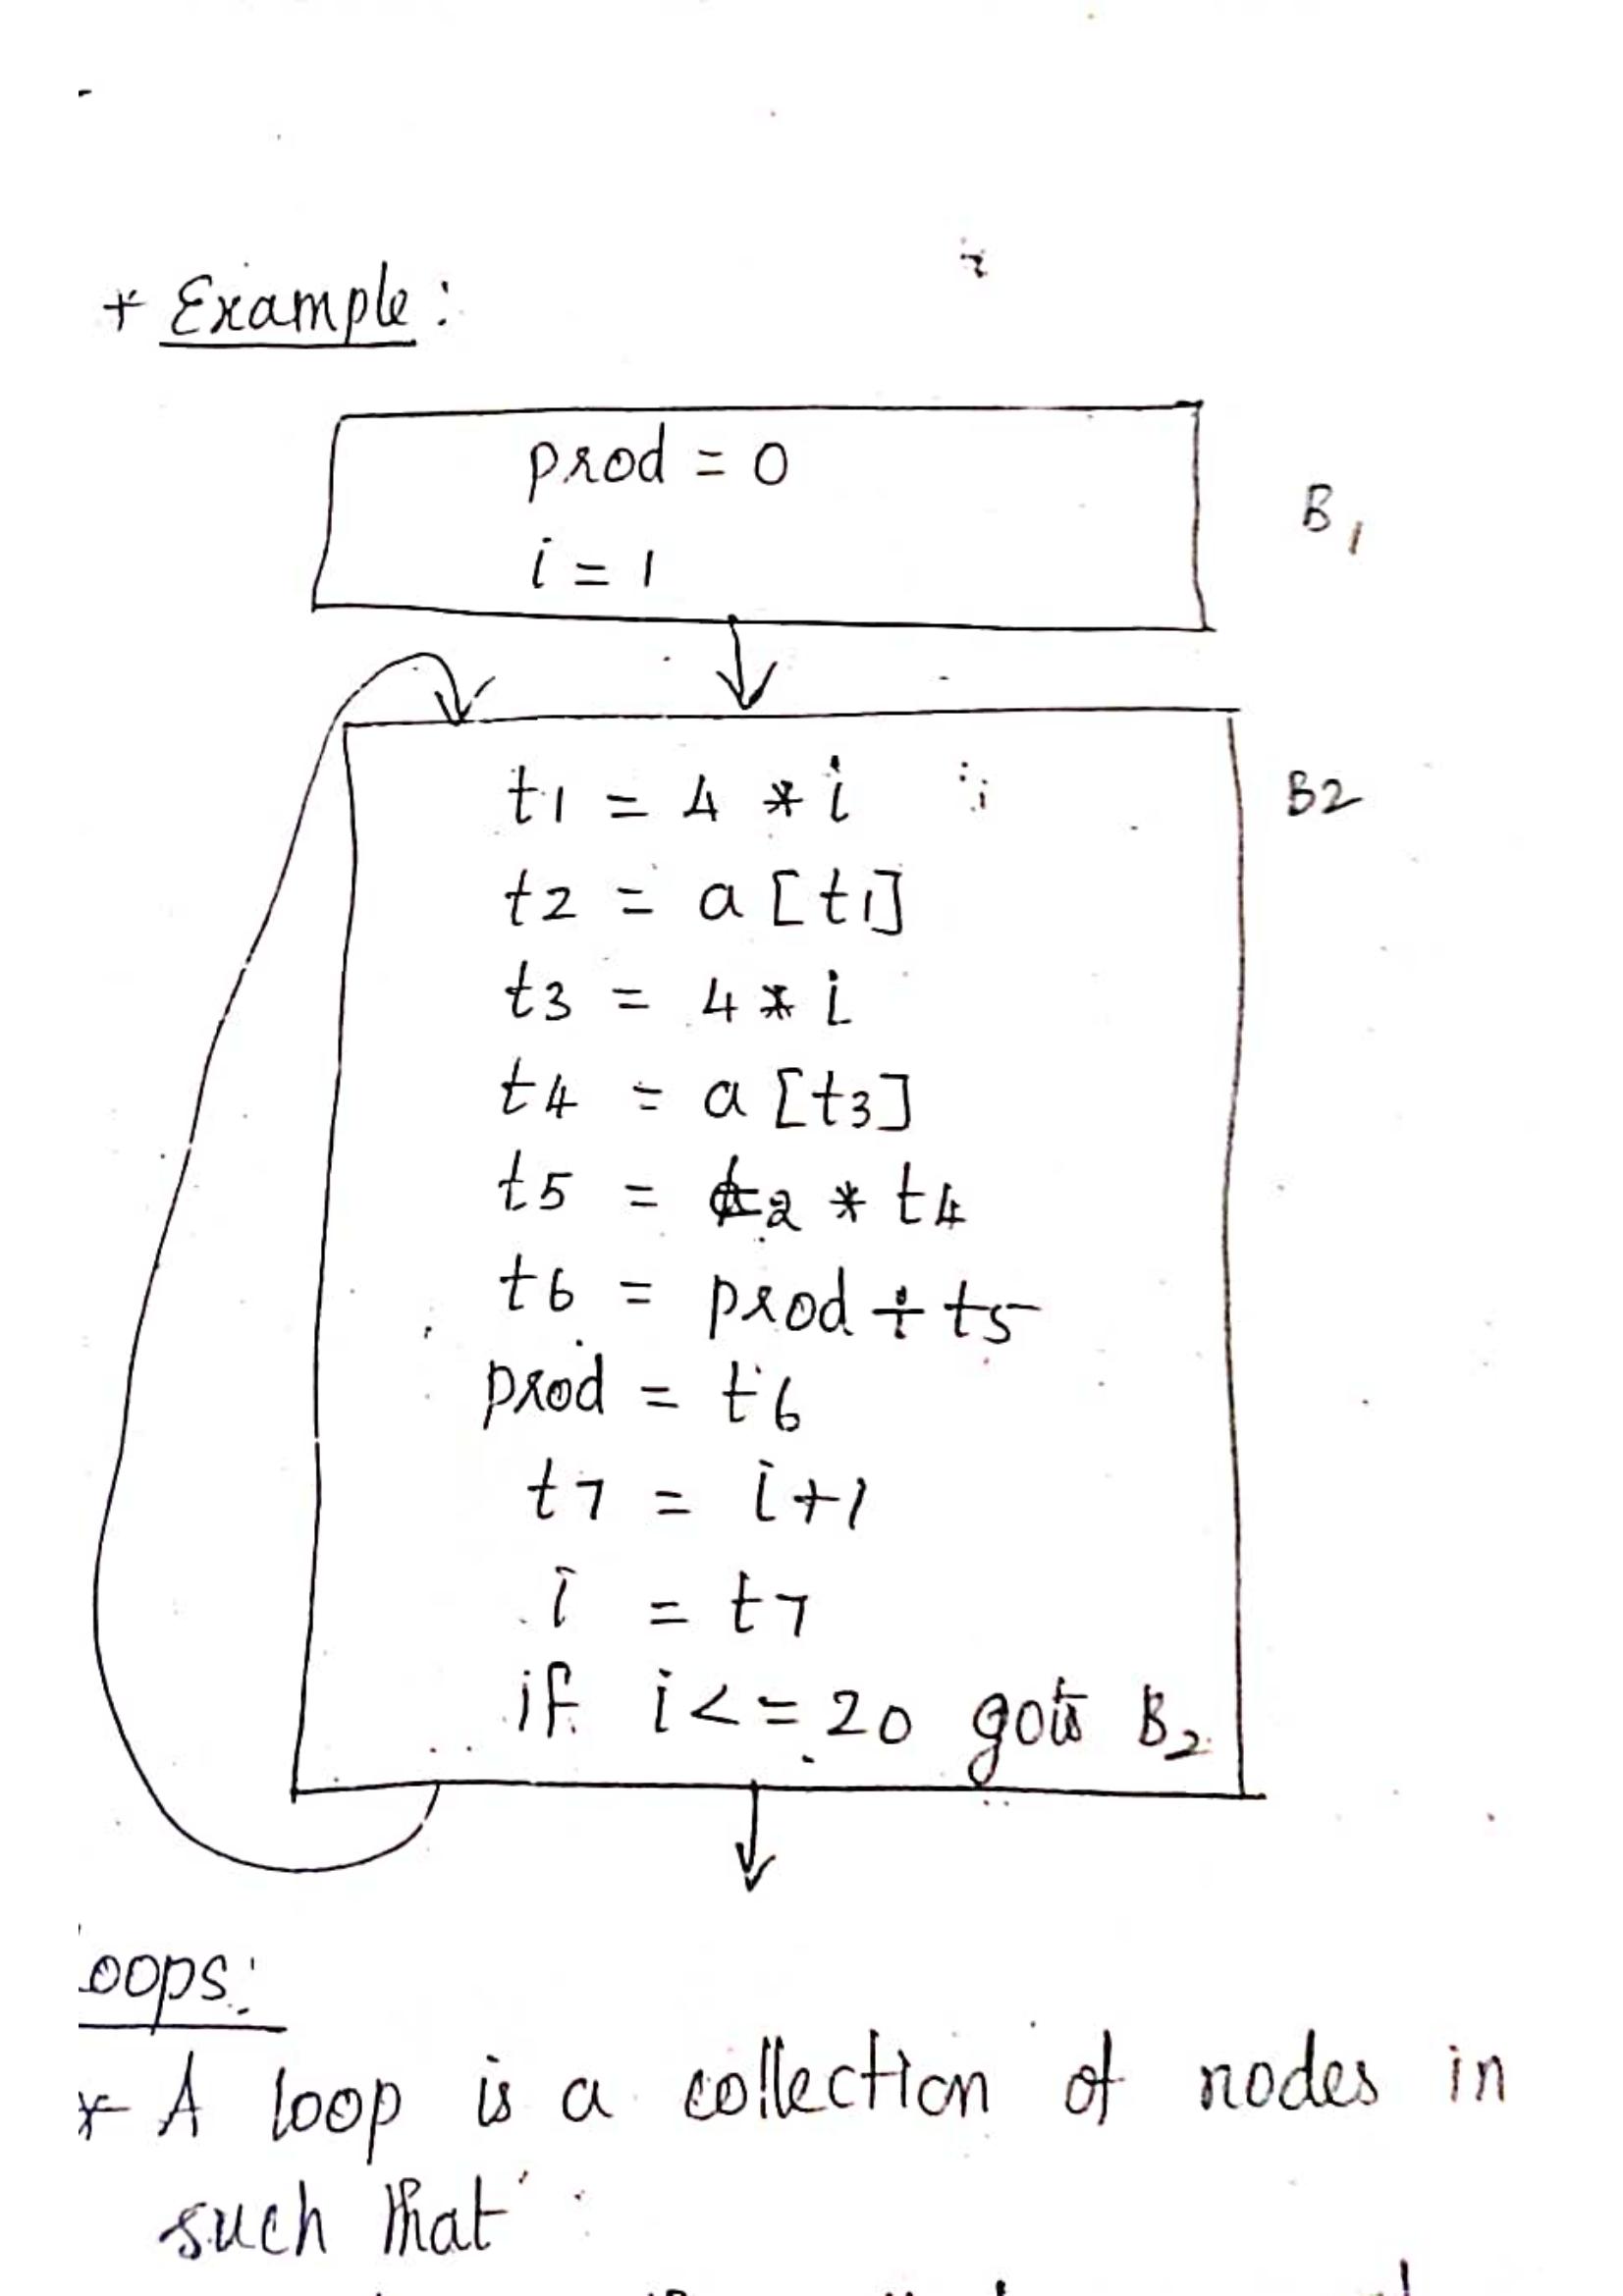 + Example:
prod = 0
i = 1
B1
t1 = 4 * i
B2
t2 = a [t1]
t3 = 4 * i
t4 = a [t3]
t5 = t2 * t4
t6 = prod + t5
prod = t6
t7 = i+1
i = t7
if i <= 20 goto B2
oops:
* A loop is a collection of nodes in
such that